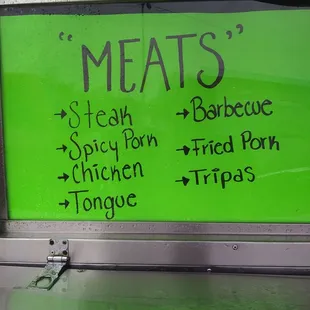 "MEATS"
→Steak
→Spicy Pork
→Chicken
→Tongue
→Barbecue
→Fried Pork
→Tripas